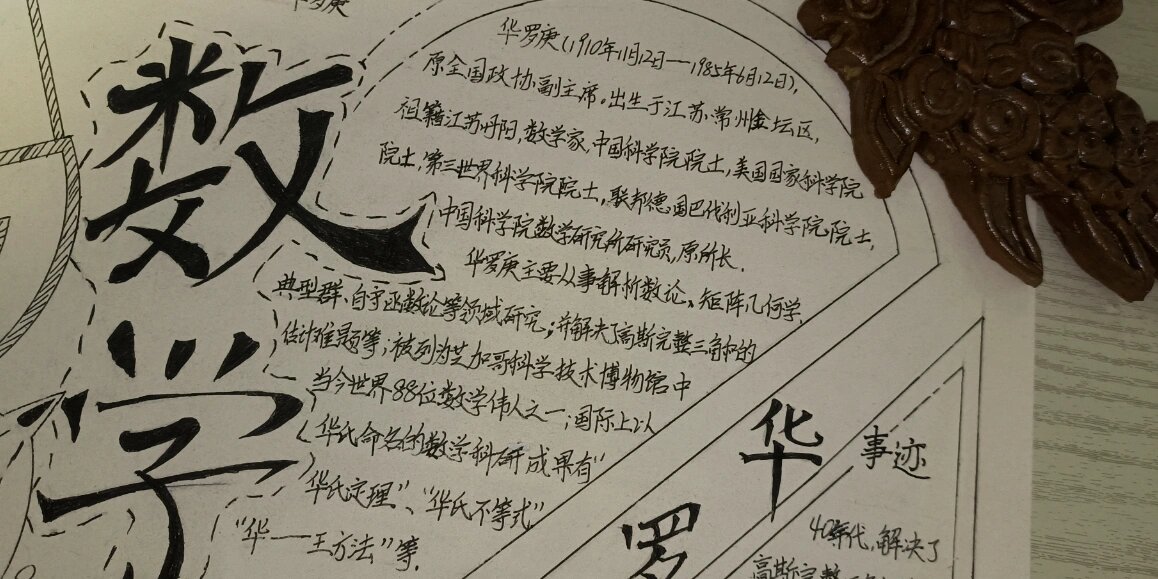 罗庚
数学
华罗庚(1910年11月12日—1985年6月12日),
原全国政协副主席。出生于江苏常州金坛区,
祖籍江苏丹阳,数学家,中国科学院院士,美国国家科学院
院士,第三世界科学院院士,联邦德国巴伐利亚科学院院士,
中国科学院数学研究所研究员,原所长.
华罗庚主要从事解析数论、矩阵几何学、
典型群、自守函数论等领域研究;并解决了高斯完整三角和的
估计难题等;被列为芝加哥科学技术博物馆中
当今世界88位数学伟人之一;国际上以
华氏命名的数学科研成果有"
华氏定理"、"华氏不等式"
"华—王方法"等.
华罗
事迹
40年代,解决了
高斯完整